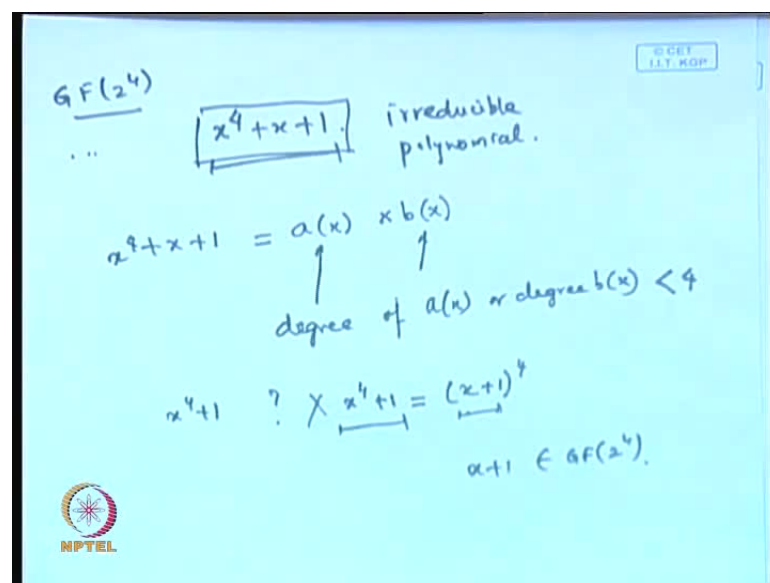 © CET
I.I.T. KGP
GF(2⁴)
... x⁴+x+1. irreducible
polynomial.
x⁴+x+1 = a(x) × b(x)
degree of a(x) or degree b(x) < 4
x⁴+1 ? X x⁴+1 = (x+1)⁴
x+1 ∈ GF(2⁴).
NPTEL